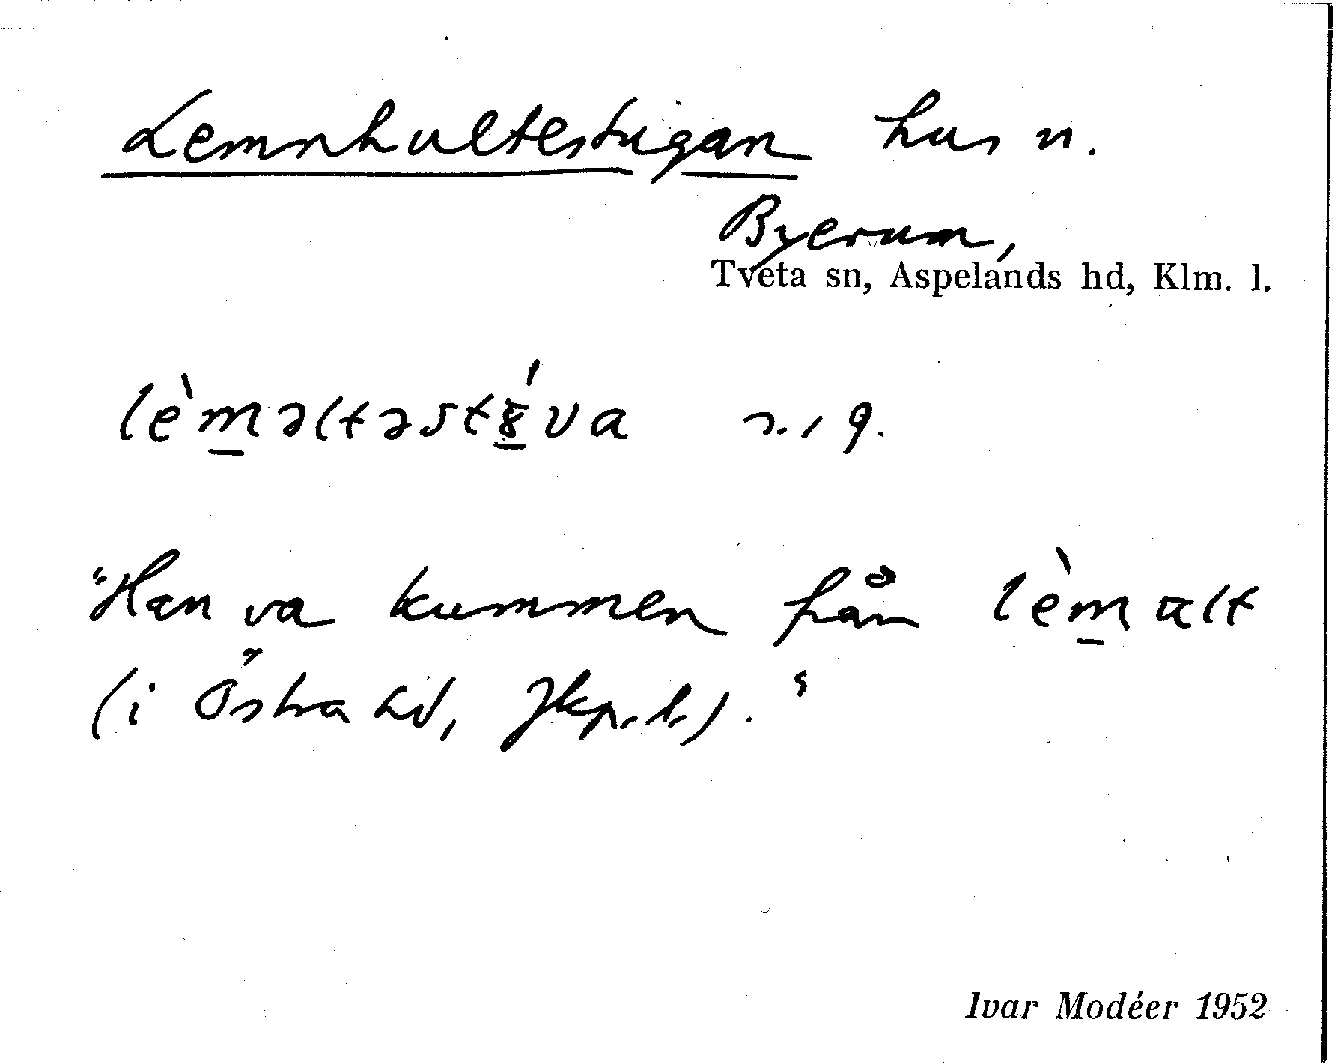 Lemnhultestugan hus n.
Byerum,
Tveta sn, Aspelands hd, Klm. l.
lèm̲əltəst８́va
"Han va kummen från lèm̲alt
(i Östra hd, Jkp. l.)."
Ivar Modéer 1952